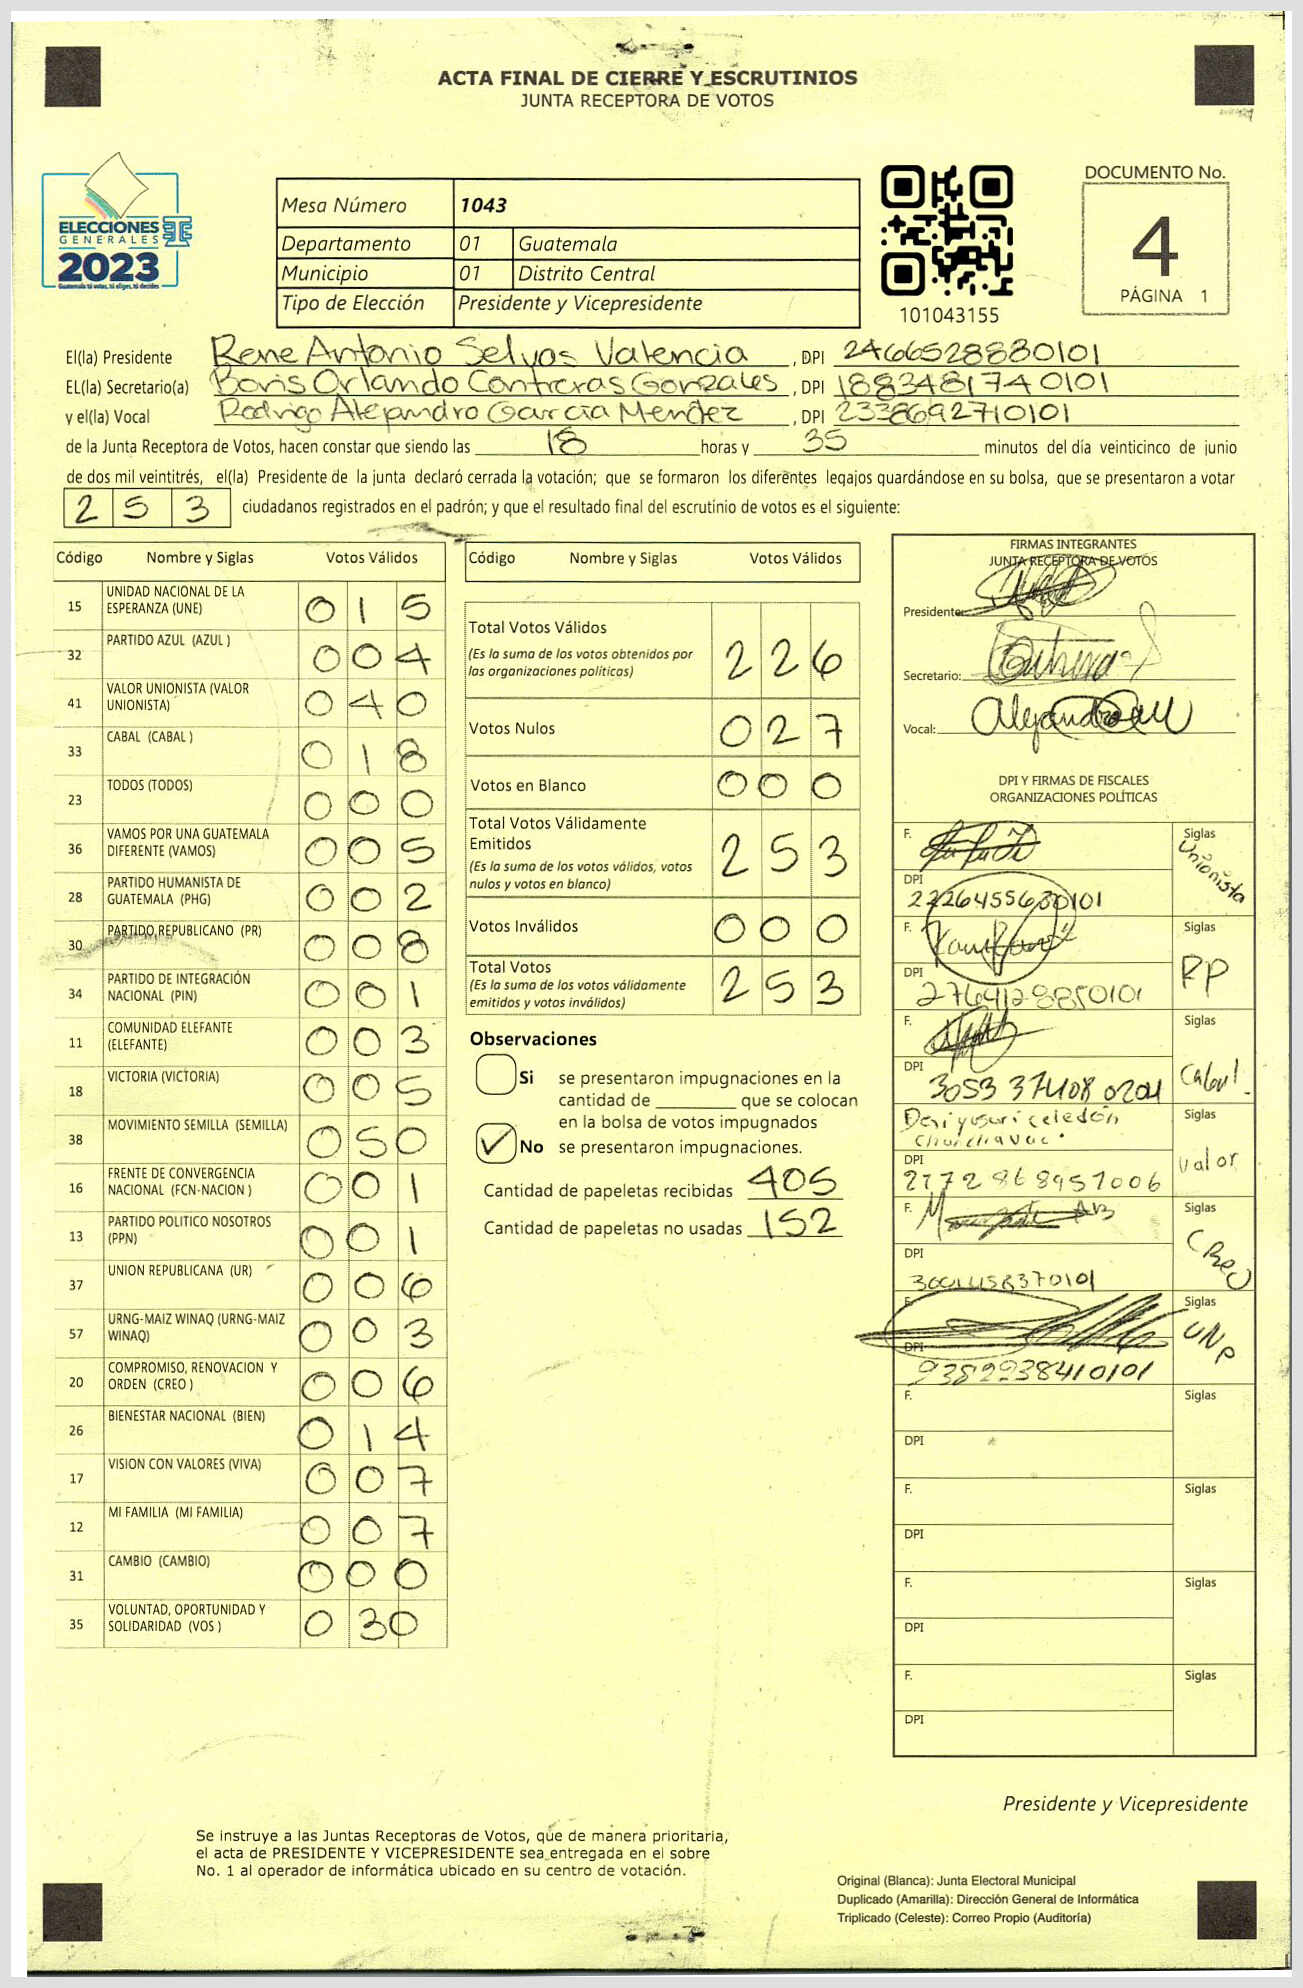 ACTA FINAL DE CIERRE Y ESCRUTINIOS
JUNTA RECEPTORA DE VOTOS
ELECCIONES
GENERALES
2023
Guatemala tú votas, tú eliges, tú decides
Mesa Número 1043
Departamento 01 Guatemala
Municipio 01 Distrito Central
Tipo de Elección Presidente y Vicepresidente
101043155
DOCUMENTO No.
4
PÁGINA 1
El(la) Presidente Rene Antonio Selvas Valencia, DPI 2466528830101
EL(la) Secretario(a) Boris Orlando Contreras Gonzales, DPI 1883481740101
y el(la) Vocal Rodrigo Alejandro Garcia Mendez, DPI 2338692710101
de la Junta Receptora de Votos, hacen constar que siendo las 18 horas y 35 minutos del día veinticinco de junio
de dos mil veintitrés, el(la) Presidente de la junta declaró cerrada la votación; que se formaron los diferentes legajos guardándose en su bolsa, que se presentaron a votar
253 ciudadanos registrados en el padrón; y que el resultado final del escrutinio de votos es el siguiente:
Código Nombre y Siglas Votos Válidos
15 UNIDAD NACIONAL DE LA ESPERANZA (UNE) 015
32 PARTIDO AZUL (AZUL ) 004
41 VALOR UNIONISTA (VALOR UNIONISTA) 040
33 CABAL (CABAL ) 018
23 TODOS (TODOS) 000
36 VAMOS POR UNA GUATEMALA DIFERENTE (VAMOS) 005
28 PARTIDO HUMANISTA DE GUATEMALA (PHG) 002
30 PARTIDO REPUBLICANO (PR) 008
34 PARTIDO DE INTEGRACIÓN NACIONAL (PIN) 001
11 COMUNIDAD ELEFANTE (ELEFANTE) 003
18 VICTORIA (VICTORIA) 005
38 MOVIMIENTO SEMILLA (SEMILLA) 050
16 FRENTE DE CONVERGENCIA NACIONAL (FCN-NACION ) 001
13 PARTIDO POLITICO NOSOTROS (PPN) 001
37 UNION REPUBLICANA (UR) 006
57 URNG-MAIZ WINAQ (URNG-MAIZ WINAQ) 003
20 COMPROMISO, RENOVACION Y ORDEN (CREO ) 006
26 BIENESTAR NACIONAL (BIEN) 014
17 VISION CON VALORES (VIVA) 007
12 MI FAMILIA (MI FAMILIA) 007
31 CAMBIO (CAMBIO) 000
35 VOLUNTAD, OPORTUNIDAD Y SOLIDARIDAD (VOS ) 030
Código Nombre y Siglas Votos Válidos
Total Votos Válidos 226
(Es la suma de los votos obtenidos por
las organizaciones políticas)
Votos Nulos 027
Votos en Blanco 000
Total Votos Válidamente
Emitidos 253
(Es la suma de los votos válidos, votos
nulos y votos en blanco)
Votos Inválidos 000
Total Votos 253
(Es la suma de los votos válidamente
emitidos y votos inválidos)
Observaciones
Si se presentaron impugnaciones en la
cantidad de ________ que se colocan
en la bolsa de votos impugnados
No se presentaron impugnaciones.
Cantidad de papeletas recibidas 405
Cantidad de papeletas no usadas 152
FIRMAS INTEGRANTES
JUNTA RECEPTORA DE VOTOS
Presidente:
Secretario:
Vocal:
DPI Y FIRMAS DE FISCALES
ORGANIZACIONES POLÍTICAS
F. Siglas
Unionista
DPI
2226455630101
F. Siglas
RP
DPI
2764128850101
F. Siglas
DPI
3053 37408 0204
Siglas
Valor
DPI
2772868957006
F. Siglas
CREO
DPI
F. Siglas
DPI
9382938410101
F. Siglas
DPI
F. Siglas
DPI
F. Siglas
DPI
F. Siglas
DPI
Presidente y Vicepresidente
Se instruye a las Juntas Receptoras de Votos, que de manera prioritaria,
el acta de PRESIDENTE Y VICEPRESIDENTE sea entregada en el sobre
No. 1 al operador de informática ubicado en su centro de votación.
Original (Blanca): Junta Electoral Municipal
Duplicado (Amarilla): Dirección General de Informática
Triplicado (Celeste): Correo Propio (Auditoría)